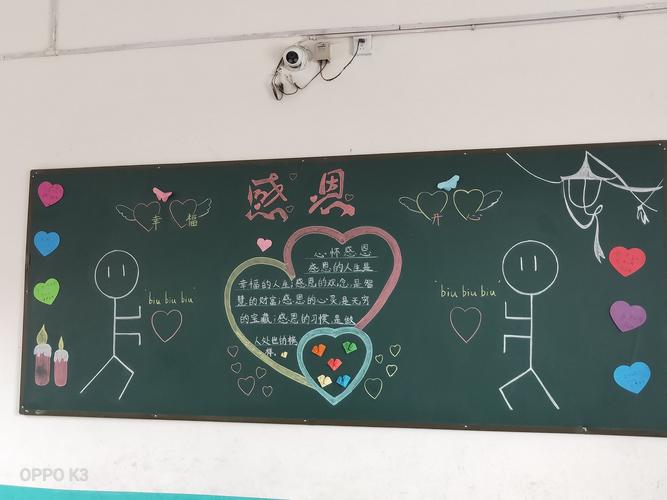 感恩
幸福
开心
心怀感恩
感恩的人生是
幸福的人生;感恩的欢念,是智
慧的财富;感恩的心灵,是无穷
的宝藏;感恩的习惯,是做
人处世的模
样。
"biu biu biu"
"biu biu biu"
OPPO K3